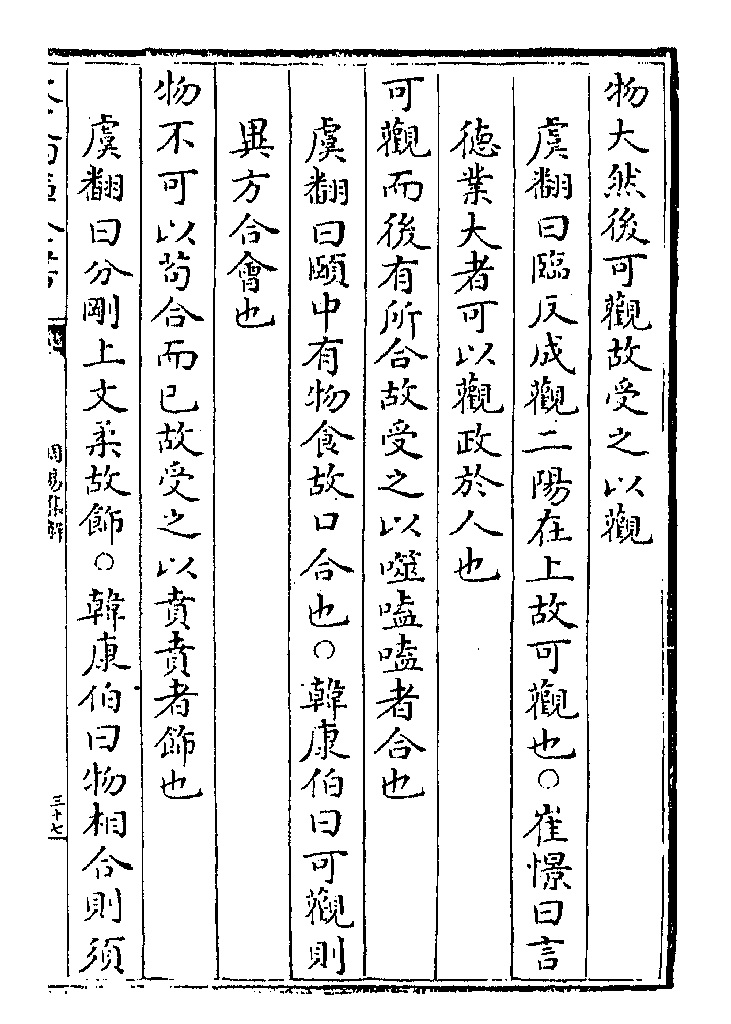 物大然後可觀故受之以觀
虞翻曰臨反成觀二陽在上故可觀也○崔憬曰言
德業大者可以觀政於人也
可觀而後有所合故受之以噬嗑嗑者合也
虞翻曰頤中有物食故口合也○韓康伯曰可觀則
異方合會也
物不可以苟合而已故受之以賁賁者飾也
虞翻曰分剛上文柔故飾○韓康伯曰物相合則須
周易集解
三十七